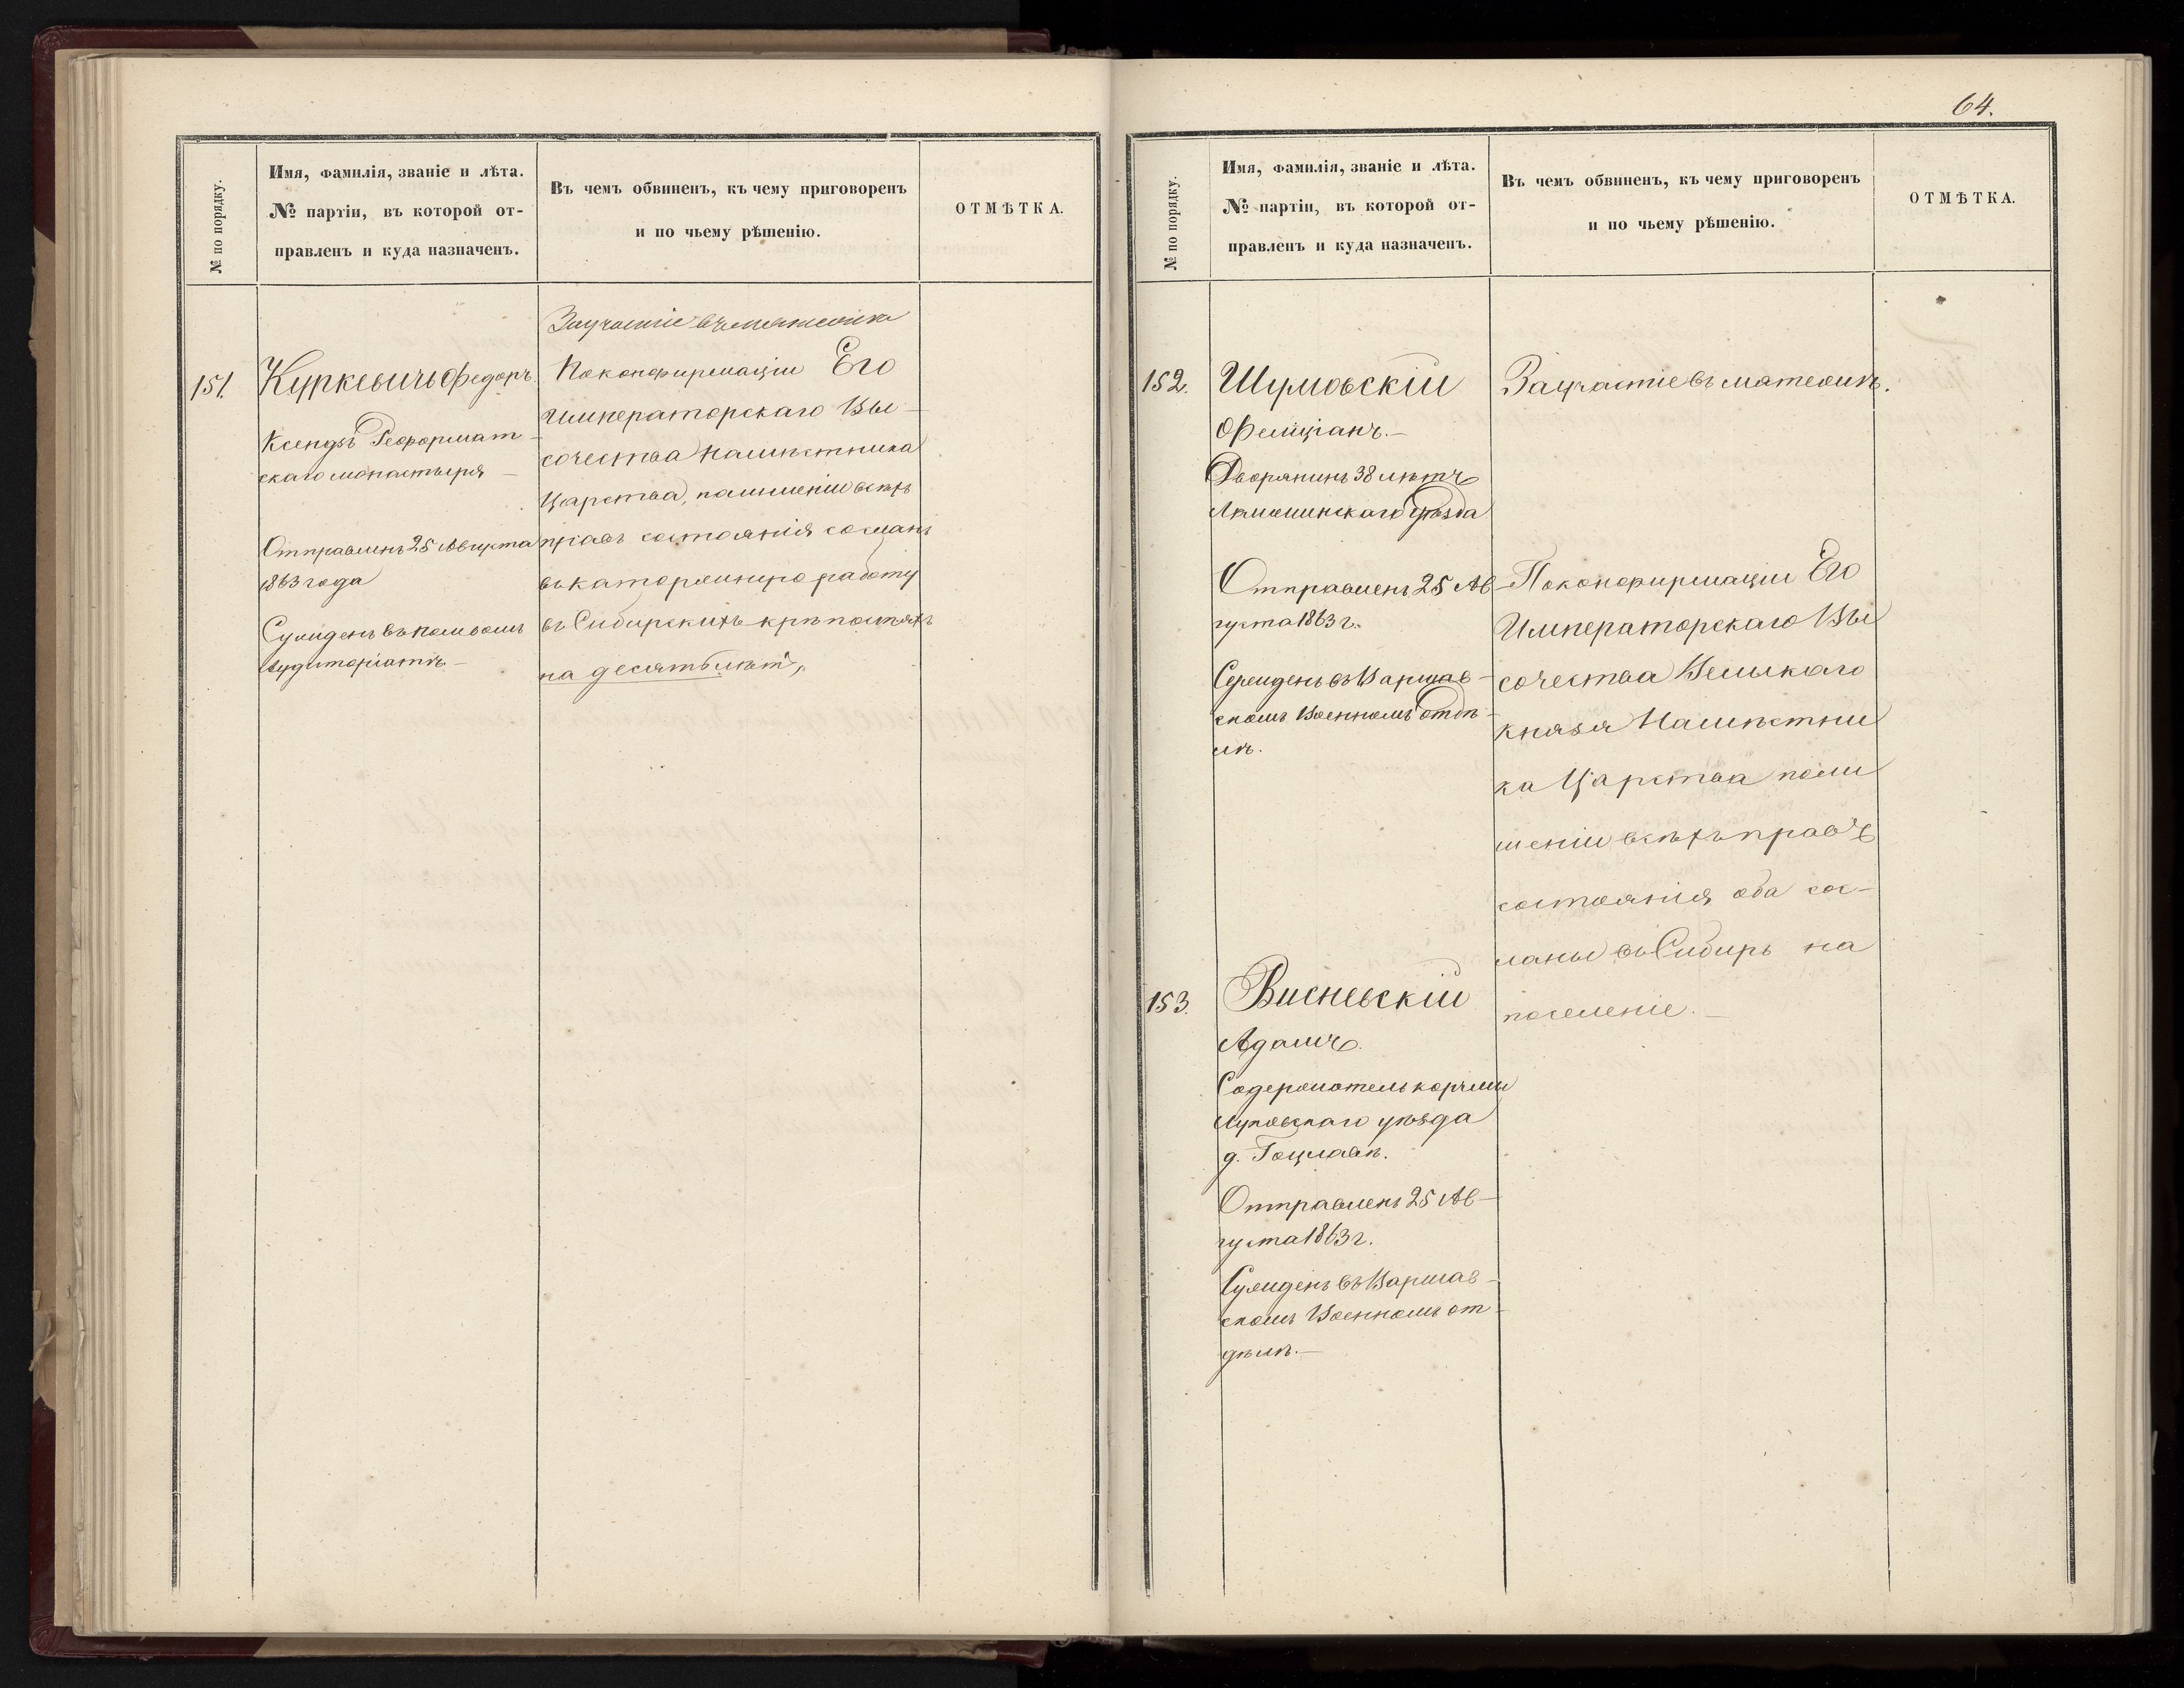 № по порядку.
Имя, фамилія, званіе и лѣта.
№ партіи, въ которой от-
правленъ и куда назначенъ.
Въ чемъ обвиненъ, къ чему приговоренъ
и по чьему рѣшенію.
ОТМѢТКА.
151.
Куркевичъ Федоръ.
Ксендзъ Реформат-
скаго монастыря –
Отправленъ 25 Августа
1863 года
Сужденъ въ полевомъ
Аудиторіатѣ. –
За участіе въ мятежѣ
По конфирмаціи Его
Императорскаго Вы-
сочества Намѣстника
Царства, по лишеніи всѣхъ
правъ состоянія сосланъ
въ каторжную работу
въ Сибирскихъ крѣпостяхъ
на десять лѣтъ,
64.
№ по порядку.
Имя, фамилія, званіе и лѣта.
№ партіи, въ которой от-
правленъ и куда назначенъ.
Въ чемъ обвиненъ, къ чему приговоренъ
и по чьему рѣшенію.
ОТМѢТКА.
152.
Шумовскій
Фелиціанъ. –
Дворянинъ 38 лѣтъ
уѣзда
Отправленъ 25 Ав-
густа 1863 г.
Сужденъ въ Варшав-
скомъ Военномъ отдѣ-
лѣ.
За участіе въ мятежѣ.
По конфирмаціи Его
Императорскаго Вы
сочества Великаго
Князя Намѣстни
ка Царства по ли
шеніи всѣхъ правъ
состоянія оба сос-
ланы въ Сибирь на
поселеніе. –
153.
Висневскій
Адамъ.
Содержатель корчмы
Луковскаго уѣзда
д. Гоцлавѣ.
Отправленъ 25 Ав-
густа 1863 г.
Сужденъ въ Варшав-
скомъ Военномъ от-
дѣлѣ. –